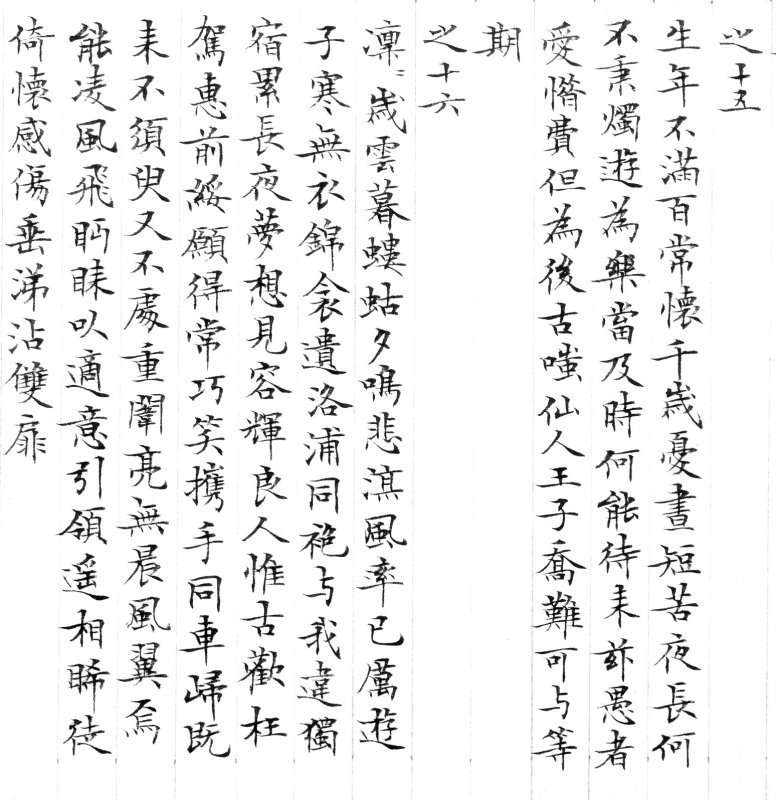 之十五
生年不滿百常懷千歲憂晝短苦夜長何
不秉燭遊為樂當及時何能待来茲愚者
愛惜費但為後古嗤仙人王子喬難可与等
期
之十六
凜〻歲雲暮螻蛄夕鳴悲涼風率已厲遊
子寒無衣錦衾遺洛浦同袍与我違獨
宿累長夜夢想見容輝良人惟古歡枉
駕惠前綏願得常巧笑携手同車歸既
来不須臾又不處重闈亮無晨風翼焉
能凌風飛眄睞以適意引領遥相睎徒
倚懷感傷垂涕沾雙扉